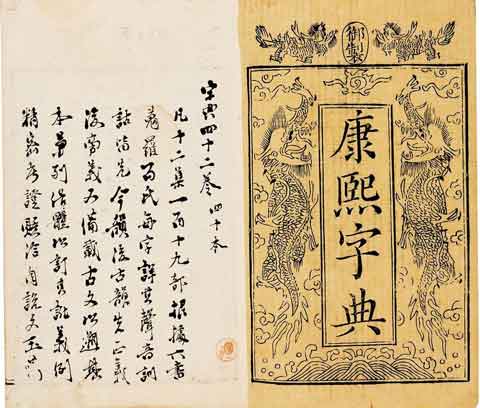 御製
康熙字典
字典四十二卷 四十本
凡十二集一百十九部根據六書
蒐羅百氏每字詳其聲音訓
詁皆先今韻後古韻先正義
後旁義又備載古文以溯其
本兼列俗體以訂其訛義例
精密考證賅洽自說文玉